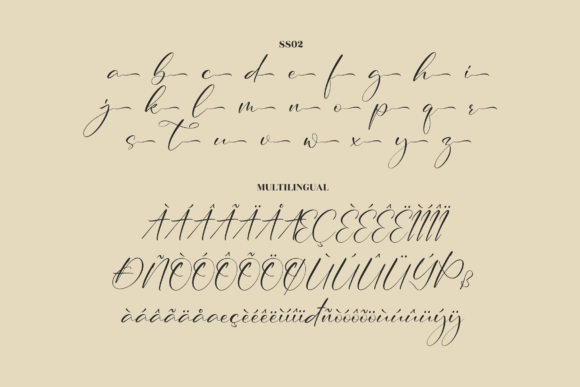 SS02
a b c d e f g h i
j k l m n o p q r
s t u v w x y z
MULTILINGUAL
ÀÁÂÃÄÅÆÇÈÉÊËÌÍÎÏ
ÐÑÒÓÔÕÖØÙÚÛÜÝÞß
àáâãäåæçèéêëìíîïđñòóôõöùúûüýÿ